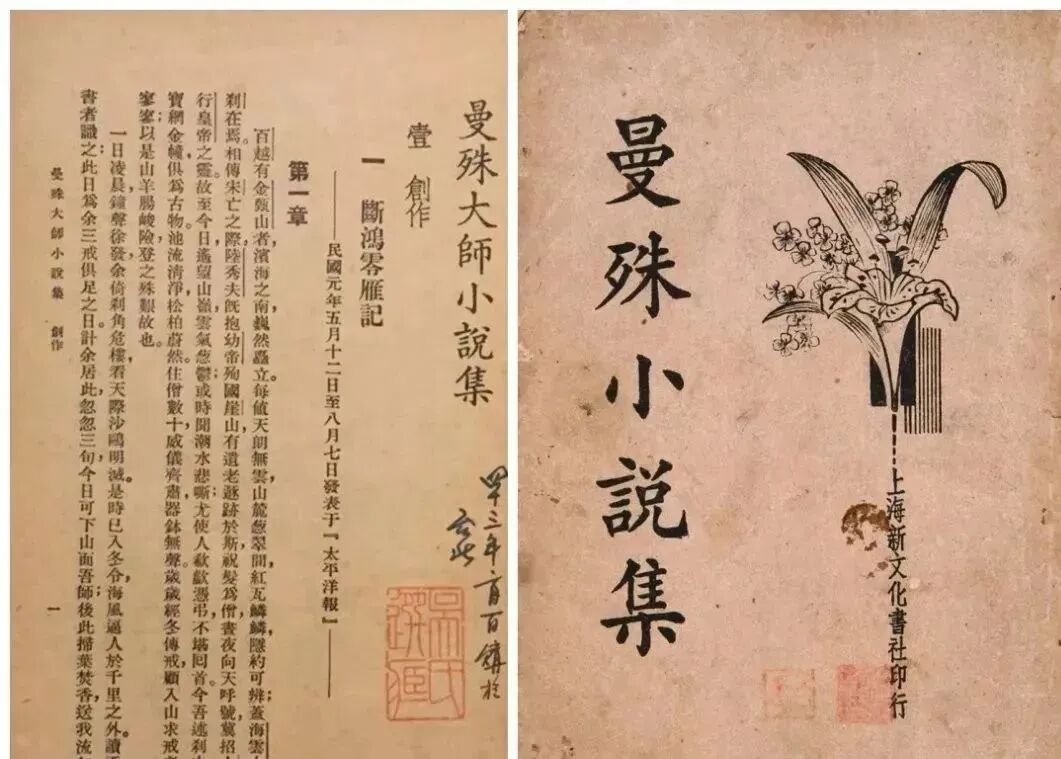 曼殊大師小說集
壹　創作
一　斷鴻零雁記
——民國元年五月十二日至八月七日發表于『太平洋報』——
第一章
百越有金甌山者，濱海之南，巍然矗立。每値天朗無雲，山麓葱翠間，紅瓦鱗鱗，隱約可辨；蓋海雲
刹在焉。相傳宋亡之際，陸秀夫旣抱幼帝殉國崖山，有遺老遯跡於斯，祝髮爲僧，晝夜向天呼號，冀招
行皇帝之靈。故至今日，遙望山嶺，雲氣葱鬱；或時聞潮水悲嘶，尤使人欷歔憑弔，不堪回首。今吾述刹
寶網金幢，俱爲古物。池流清淨，松柏蔚然。住僧數十，威儀齊肅，器鉢無聲。歲歲經冬傳戒，顧入山求戒
寥寥；以是山羊腸峻險，登之殊艱故也。
一日凌晨，鐘聲徐發，余倚刹角危樓，看天際沙鷗明滅。是時已入冬令，海風逼人於千里之外。讀
書者識之；此日爲余三戒俱足之日。計余居此，忽忽三旬，今日可下山面吾師；後此掃葉焚香，送我流
曼殊大師小說集　創作
一
曼殊小說集
上海新文化書社印行